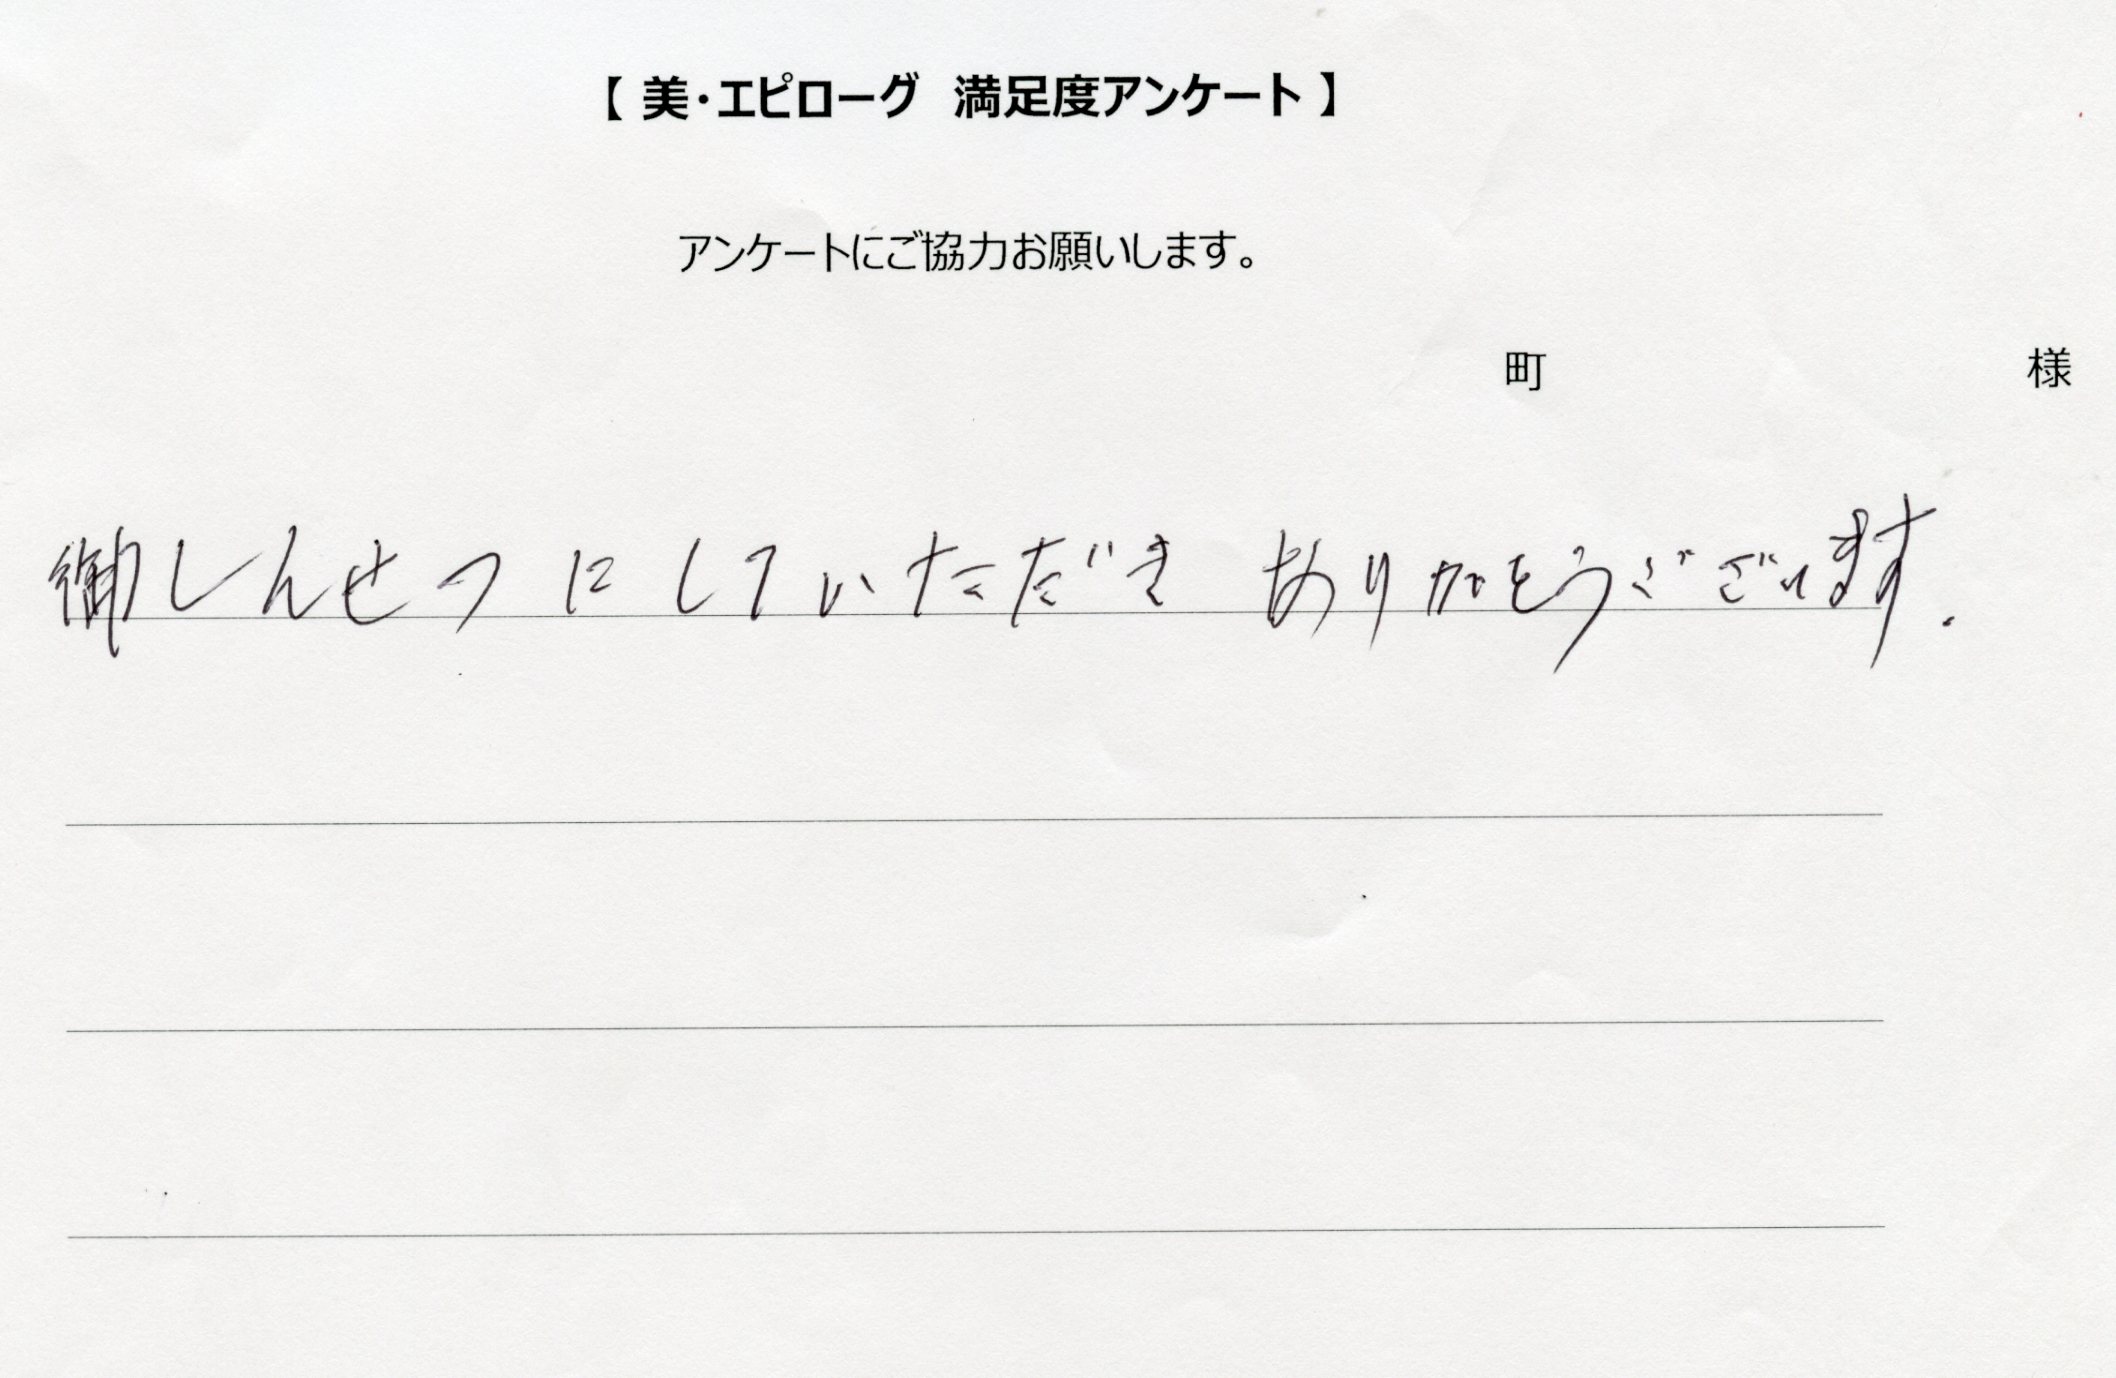 【 美・エピローグ 満足度アンケート 】
アンケートにご協力お願いします。
町 様
御しんせつにしていただき ありがとうございます.